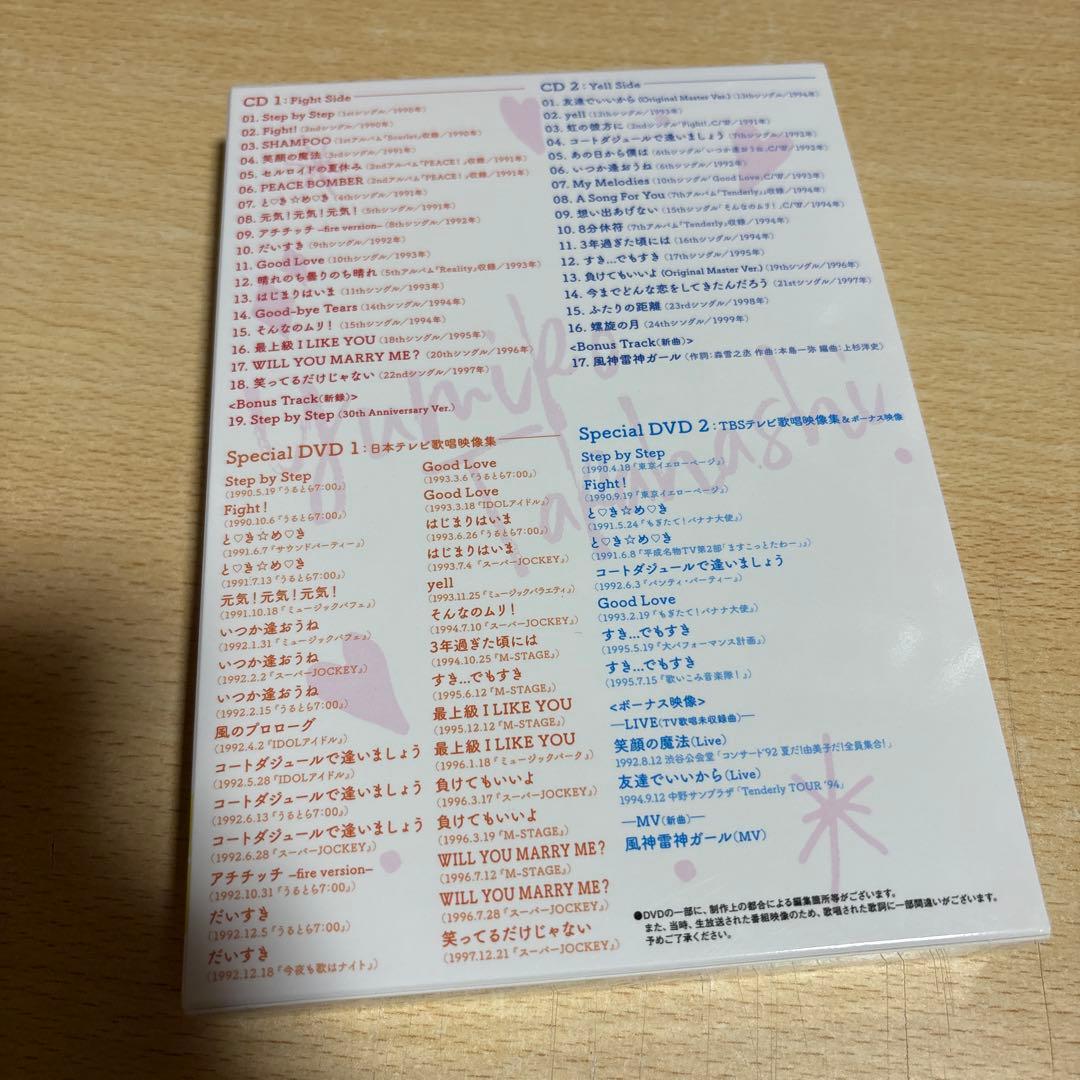 CD 1 : Fight Side
01. Step by Step (1stシングル/1990年)
02. Fight! (2ndシングル/1990年)
03. SHAMPOO (1stアルバム『Scarlet』収録/1990年)
04. 笑顔の魔法 (3rdシングル/1991年)
05. セルロイドの夏休み (2ndアルバム『PEACE!』収録/1991年)
06. PEACE BOMBER (2ndアルバム『PEACE!』収録/1991年)
07. と♡き☆め♡き (4thシングル/1991年)
08. 元気!元気!元気! (5thシングル/1991年)
09. アチチッチ –fire version– (8thシングル/1992年)
10. だいすき (9thシングル/1992年)
11. Good Love (10thシングル/1993年)
12. 晴れのち曇りのち晴れ (5thアルバム『Reality』収録/1993年)
13. はじまりはいま (11thシングル/1993年)
14. Good-bye Tears (14thシングル/1994年)
15. そんなのムリ! (15thシングル/1994年)
16. 最上級 I LIKE YOU (18thシングル/1995年)
17. WILL YOU MARRY ME? (20thシングル/1996年)
18. 笑ってるだけじゃない (22ndシングル/1997年)
<Bonus Track(新録)>
19. Step by Step (30th Anniversary Ver.)
CD 2 : Yell Side
01. 友達でいいから (Original Master Ver.) (13thシングル/1994年)
02. yell (12thシングル/1993年)
03. 虹の彼方に (2ndシングル「Fight!」C/W/1991年)
04. コートダジュールで逢いましょう (7thシングル/1992年)
05. あの日から僕は (6thシングル「いつか逢おうね」C/W/1992年)
06. いつか逢おうね (6thシングル/1992年)
07. My Melodies (10thシングル「Good Love」C/W/1993年)
08. A Song For You (7thアルバム『Tenderly』収録/1994年)
09. 想い出あげない (15thシングル「そんなのムリ!」C/W/1994年)
10. 8分休符 (7thアルバム『Tenderly』収録/1994年)
11. 3年過ぎた頃には (16thシングル/1994年)
12. すき…でもすき (17thシングル/1995年)
13. 負けてもいいよ (Original Master Ver.) (19thシングル/1996年)
14. 今までどんな恋をしてきたんだろう (21stシングル/1997年)
15. ふたりの距離 (23rdシングル/1998年)
16. 螺旋の月 (24thシングル/1999年)
<Bonus Track(新曲)>
17. 風神雷神ガール (作詞:森雪之丞 作曲:本島一弥 編曲:上杉洋史)
Yumiko Takahashi
Special DVD 1 : 日本テレビ歌唱映像集
Step by Step
(1990.5.19『うるとら7:00』)
Fight!
(1990.10.6『うるとら7:00』)
と♡き☆め♡き
(1991.6.7『サウンドパーティー』)
と♡き☆め♡き
(1991.7.13『うるとら7:00』)
元気!元気!元気!
(1991.10.18『ミュージックバフェ』)
いつか逢おうね
(1992.1.31『ミュージックバフェ』)
いつか逢おうね
(1992.2.2『スーパーJOCKEY』)
いつか逢おうね
(1992.2.15『うるとら7:00』)
風のプロローグ
(1992.4.2『IDOLアイドル』)
コートダジュールで逢いましょう
(1992.5.28『IDOLアイドル』)
コートダジュールで逢いましょう
(1992.6.13『うるとら7:00』)
コートダジュールで逢いましょう
(1992.6.28『スーパーJOCKEY』)
アチチッチ –fire version–
(1992.10.31『うるとら7:00』)
だいすき
(1992.12.5『うるとら7:00』)
だいすき
(1992.12.18『今夜も歌はナイト』)
Good Love
(1993.3.6『うるとら7:00』)
Good Love
(1993.3.18『IDOLアイドル』)
はじまりはいま
(1993.6.26『うるとら7:00』)
はじまりはいま
(1993.7.4『スーパーJOCKEY』)
yell
(1993.11.25『ミュージックバラエティ』)
そんなのムリ!
(1994.7.10『スーパーJOCKEY』)
3年過ぎた頃には
(1994.10.25『M-STAGE』)
すき…でもすき
(1995.6.12『M-STAGE』)
最上級 I LIKE YOU
(1995.12.12『M-STAGE』)
最上級 I LIKE YOU
(1996.1.18『ミュージックパーク』)
負けてもいいよ
(1996.3.17『スーパーJOCKEY』)
負けてもいいよ
(1996.3.19『M-STAGE』)
WILL YOU MARRY ME?
(1996.7.12『M-STAGE』)
WILL YOU MARRY ME?
(1996.7.28『スーパーJOCKEY』)
笑ってるだけじゃない
(1997.12.21『スーパーJOCKEY』)
Special DVD 2 : TBSテレビ歌唱映像集&ボーナス映像
Step by Step
(1990.4.18『東京イエローページ』)
Fight!
(1990.9.19『東京イエローページ』)
と♡き☆め♡き
(1991.5.24『もぎたて!バナナ大使』)
と♡き☆め♡き
(1991.6.8『平成名物TV第2部「ますこっとたわー」』)
コートダジュールで逢いましょう
(1992.6.3『パンティ・パーティー』)
Good Love
(1993.2.19『もぎたて!バナナ大使』)
すき…でもすき
(1995.5.19『大パフォーマンス計画』)
すき…でもすき
(1995.7.15『歌いこみ音楽隊!』)
<ボーナス映像>
—LIVE(TV歌唱未収録曲)—
笑顔の魔法(Live)
1992.8.12 渋谷公会堂「コンサート'92 夏だ!由美子だ!全員集合!」
友達でいいから(Live)
1994.9.12 中野サンプラザ「Tenderly TOUR '94」
—MV(新曲)—
風神雷神ガール(MV)
●DVDの一部に、制作上の都合による編集箇所等がございます。
また、当時、生放送された番組映像のため、歌唱された歌詞に一部間違いがございます。
予めご了承ください。